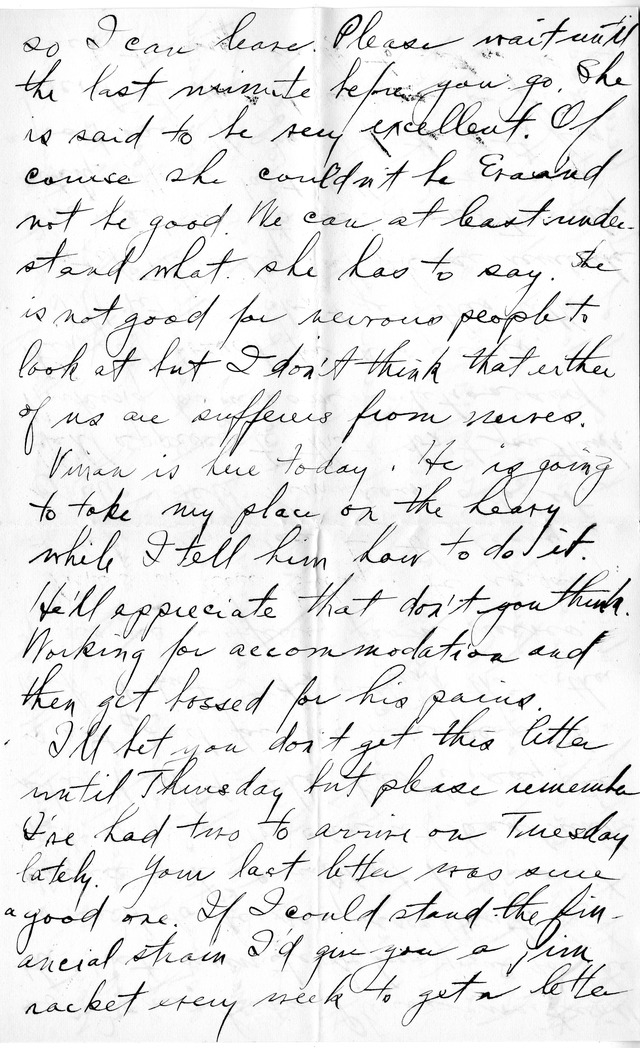 so I can leave. Please wait until
the last minute before you go. She
is said to be very excellent. Of
course she couldn't be and
not be good. We can at least under-
stand what she has to say. She
is not good for nervous people to
look at but I don't think that either
of us are sufferers from nerves.
is here today. He is going
to take my place on the heavy
while I tell him how to do it.
He'll appreciate that don't you think.
Working for accommodation and
then get bossed for his pains.
I'll bet you don't get this letter
until Thursday but please remember
I've had two to arrive on Tuesday
lately. Your last letter was sure
a good one. If I could stand the fin-
ancial strain I'd give you a
racket every week to get a letter